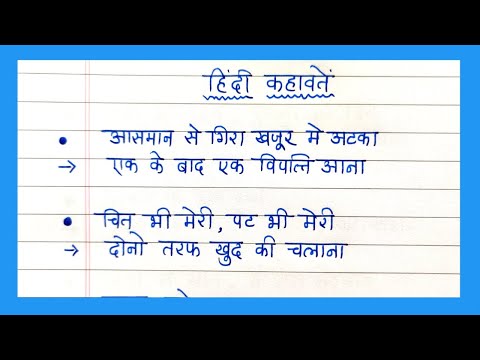 हिंदी कहावतें
• आसमान से गिरा खजूर मे अटका
→ एक के बाद एक विपत्ति आना
• चित भी मेरी, पट भी मेरी
→ दोनो तरफ खुद की चलाना